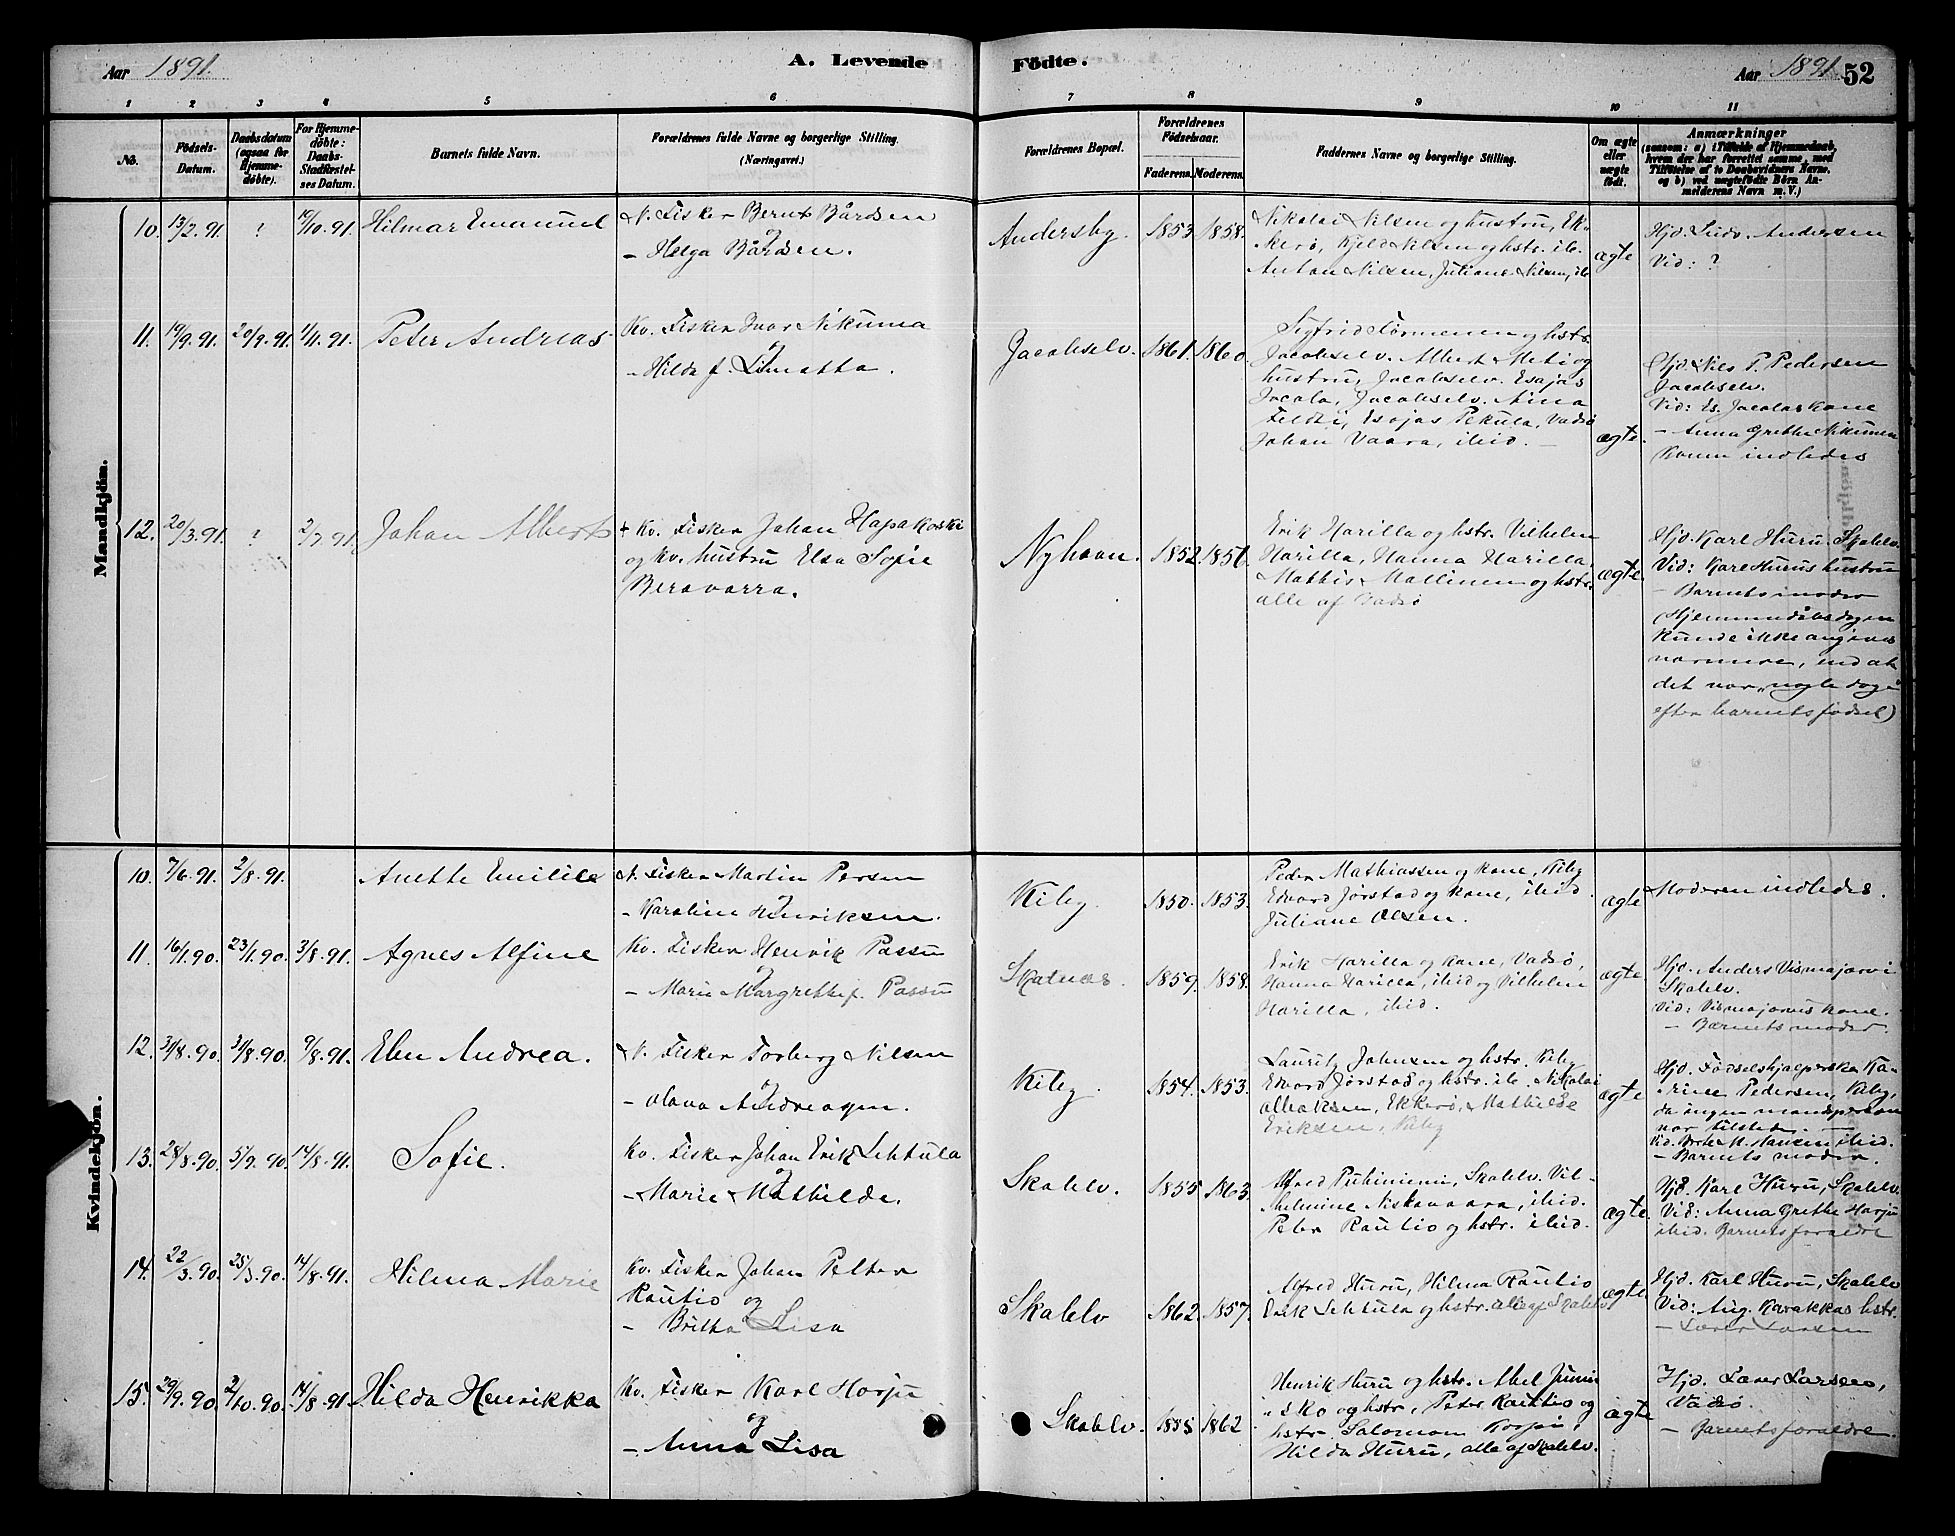 Aar 1891. A. Levende Födte. Aar 1891. 52
1 2 3 4 5 6 7 8 9 10 11
No.
Födsels-Datum.
Daabsdatum (ogsaa for Hjemme-döbte).
For Hjemme-döbte: Daabs-Stadfæstel-ses Datum.
Barnets fulde Navn.
Forældrenes fulde Navne og borgerlige Stilling. (Næringsvei.)
Forældrenes Bopæl.
Forældrenes Födselsaar.
Faderens. Moderens.
Faddernes Navne og borgerlige Stilling.
Om ægte eller uægte födt.
Anmærkninger
(saasom: a) i Tilfælde af Hjemmedaab, hvem der har forrettet samme, med Tilföielse af to Daabsvidners Navne, og b) ved uægtefödte Börn An-melderens Navn m. V.)
Mandkjön.
10. 13/2.91. ? 19/10.91. Hilmar Emanuel
N. Fisker Bernt Bårdsen
og
- Helga Bårdsen.
Andersby. 1853. 1858.
Nikolai Nilsen og hustru, Ek-
kerö, Kjeld Nilsen og hstr. ib.
Anton Nilsen, Juliane Nilsen, ib
ægte
Hjd. Ludv. Andersen
Vid: ?
11. 19/9.91. 20/9.91. 1/11.91. Peter Andreas
Kv. Fisker Ivar Nikuma
og
- Hilda f. Limatta.
Jacobselv. 1861. 1860.
Sigfrid Törmenen og hstr.
Jacobselv. Albert Meti og
hustru, Jacobselv. Esajas
Jacola, Jacobselv. Nina
Feldti, Esajas Pekula, Vadsö
Johan Vaara, ibid. -
ægte.
Hjd. Nils P. Pedersen
Jacobselv.
Vid: Es. Jacolas kone
- Anna Grethe Nikumen
Konen indledes
12. 20/3.91. ? 2/7.91. Johan Albert
+ Kv. Fisker Johan Hapakoski
og kv. hustru Elsa Sofie
Beravarra.
Nyhavn. 1852. 1856.
Erik Harilla og hstr. Vilhelm
Harilla, Hanna Harilla,
Mathis Mallinen og hstr.
alle af Vadsö
ægte.
Hjd. Karl Huru. Skalelv.
Vid: Karl Hurus hustru
- Barnets moder
(Hjemmedåbsdagen
kunde ikke angives
nærmere, end at
det var "nogle dage"
efter barnets födsel)
Kvindekjön.
10. 7/6.91. 2/8.91. Anette Emilie
N. Fisker Martin Persen
og
- Karoline Henriksen.
Kiby. 1850. 1853.
Peder Mathiassen og kone, Kiby
Edvard Jörstad og kone, ibid.
Juliane Olsen.
ægte
Moderen indledes.
11. 16/1.90. 23/1.90. 3/8.91. Agnes Alfine
Kv. Fisker Henrik Passu
og
- Marie Margrethe f. Passu
Skalnæs. 1859. 1858.
Erik Harilla og kone, Vadsö,
Hanna Harilla, ibid og Vilhelm
Harilla, ibid.
ægte
Hjd. Anders Vismajærvi
Skalelv.
Vid: Vismajærvis kone.
- Barnets moder.
12. 31/8.90. 31/8.90. 9/8.91. Elen Andrea.
N. Fisker Torberg Nilsen
og
- Olava Andreasen.
Kiby. 1854. 1853.
Lauritz Johnsen og hstr. Kiby
Edvard Jörstad og hstr. ib. Nikolai
Ekkerö, Mathilde
Eriksen, Kiby
ægte
Hjd. Födselshjælperske Ka-
trine Pedersen, Kiby,
da ingen mandsperson
var tilstede. -
Vid. M. Hansen ibid.
- Barnets moder.
13. 28/8.90. 5/9.90. 14/8.91. Sofie.
Kv. Fisker Johan Erik Lehtula
og
- Marie Mathilde.
Skalelv. 1855. 1863.
Alfred Puhinieni, Skalelv. Vil-
helmine Niskavaara, ibid.
Peter Rautio og hstr. ibid.
ægte.
Hjd. Karl Huru, Skalelv.
Vid: Anna Grethe Harju
ibid. Barnets forældre
14. 22/3.90. 25/3.90. 14/8.91. Hilma Marie
Kv. Fisker Johan Petter
Rautio og
- Britha Lisa
Skalelv 1862. 1857.
Alfred Huru, Hilma Rautio
Erik Lehtula og hstr. alle af Skalelv
ægte
Hjd. Karl Huru, Skalelv
Vid: Aug. Karakkas hstr.
- Lærer Larsen
15. 29/9.90. 2/10.90. 14/8.91 Hilda Henrikka
Kv. Fisker Karl Harju
og
- Anna Lisa
Skalelv. 1855 1862
Henrik Huru og hstr. Abel Junin
isko og hstr, Peter Rautio og
hstr. Salomon
Hilda Huru, alle af Skalelv.
ægte
Hjd. Lærer Larsen,
Vadsö.
- Barnets forældre.